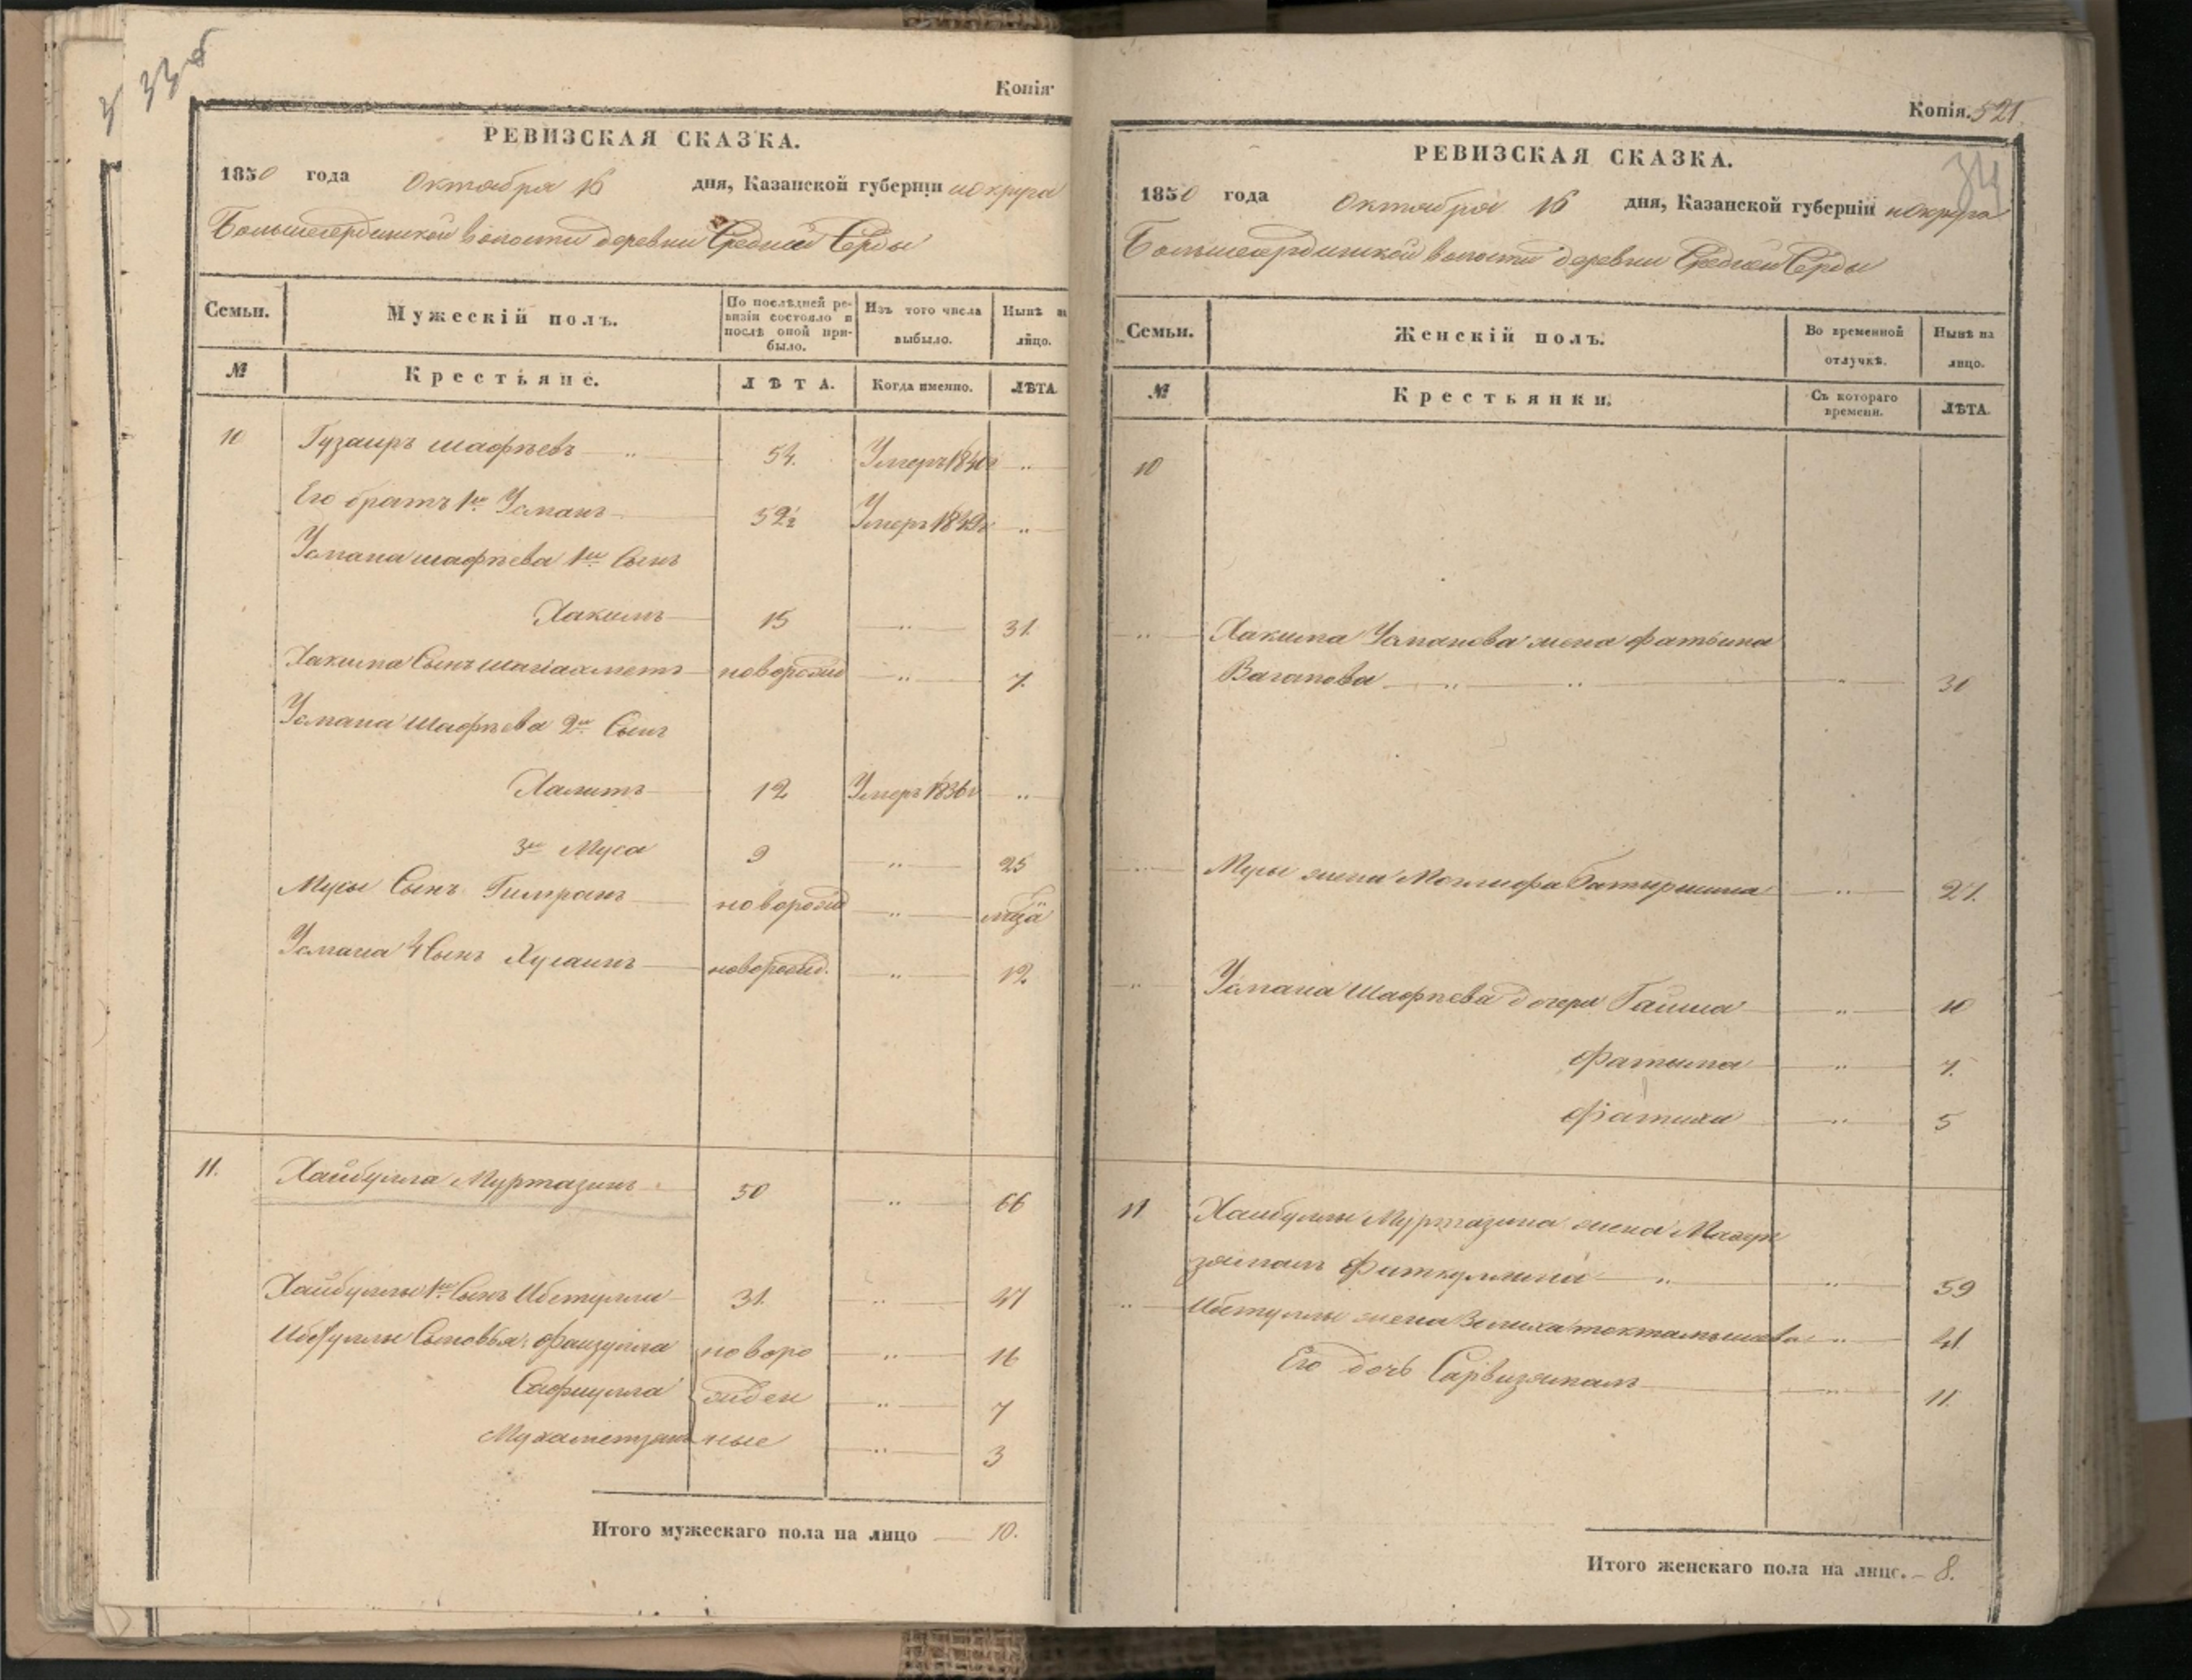 33об
Копія
РЕВИЗСКАЯ СКАЗКА.
1850 года Октября 16 дня, Казанской губерніи и округа
Большесердинской волости деревни Средней Серды
Семьи. Мужескій полъ. По послѣдней ревизіи состояло и послѣ оной прибыло. Изъ того числа выбыло. Нынѣ на лицо.
№ Крестьяне. ЛѢТА. Когда именно. ЛѢТА.
10 Гузаиръ Шафѣевъ 54. Умеръ 1840 г ..
Его братъ 1й Усманъ 52½ Умеръ 1849 г ..
Усмана Шафѣева 1й Сынъ
Хакимъ 15 .. 31.
Хакима Сынъ Шагіахметъ новорожд .. 7.
Усмана Шафѣева 2й Сынъ
Халитъ 12 Умеръ 1836 г ..
3й Муса 9 .. 25
Мусы Сынъ Гимранъ новорожд ..
Усмана 4 Сынъ Хусаинъ новорожд. .. 12.
11. Хайбулла Муртазинъ 50 .. 66
Хайбуллы 1й Сынъ Ибетулла 31. .. 47
Ибетуллы Сыновья: Фаизулла новоро .. 16
Сафиулла жден .. 7
Мухаметзянъ ные .. 3
Итого мужескаго пола на лицо 10.
Копія. 521.
34
РЕВИЗСКАЯ СКАЗКА.
1850 года Октября 16 дня, Казанской губерніи и округа
Большесердинской волости деревни Средней Серды
Семьи. Женскій полъ. Во временной отлучкѣ. Нынѣ на лицо.
№ Крестьянки. Съ котораго времени. ЛѢТА.
10
.. Хакима Усманова жена Фатьима
Вагапова .. .. .. 30
Мусы жена Маглифа Батыршина .. 27.
.. Усмана Шафѣева дочери Гайша .. 10
Фатыма .. 7.
Фатиха .. 5
11 Хайбуллы Муртазина жена Магру
зямалъ Фиткуллина .. .. 59
.. Ибетуллы жена Зюлиха Токтамышева .. 41
Его дочь Сарвизямалъ .. 11.
Итого женскаго пола на лицо. 8.